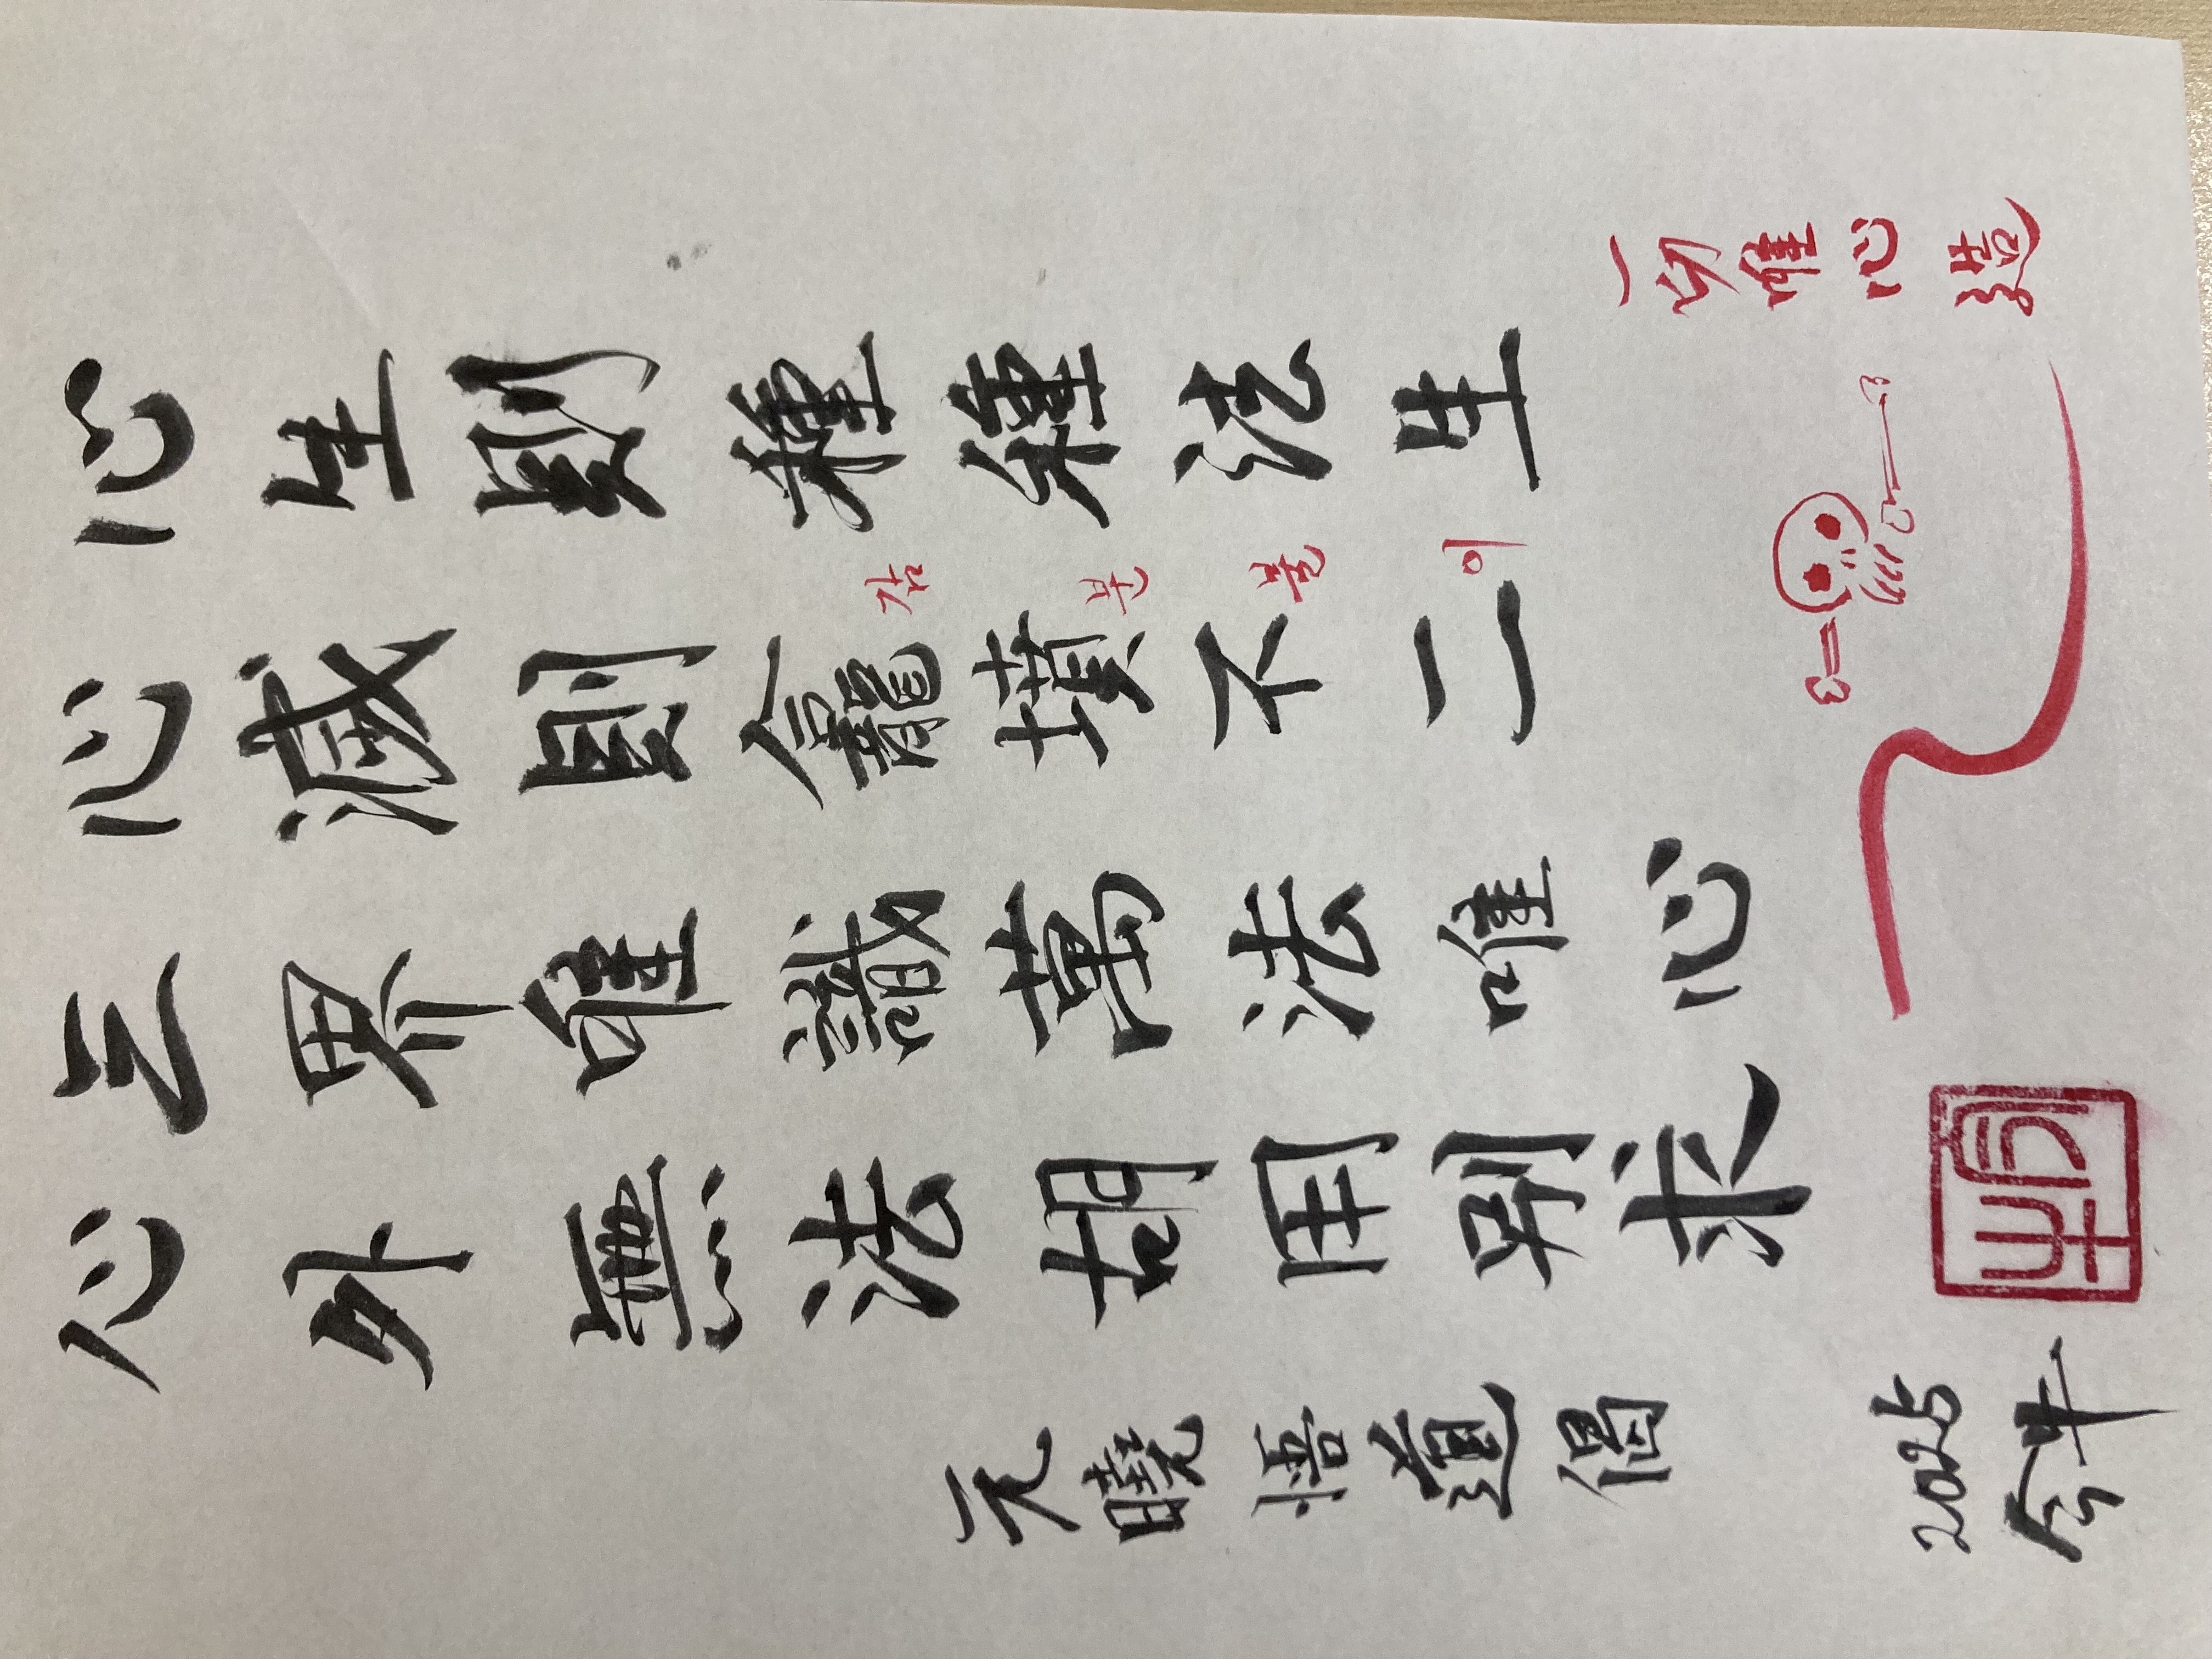 心生則種種法生
心滅則龕墳不二
감분불이
三界唯識萬法唯心
心外無法胡用別求
元曉悟道偈
一切唯心造
2025